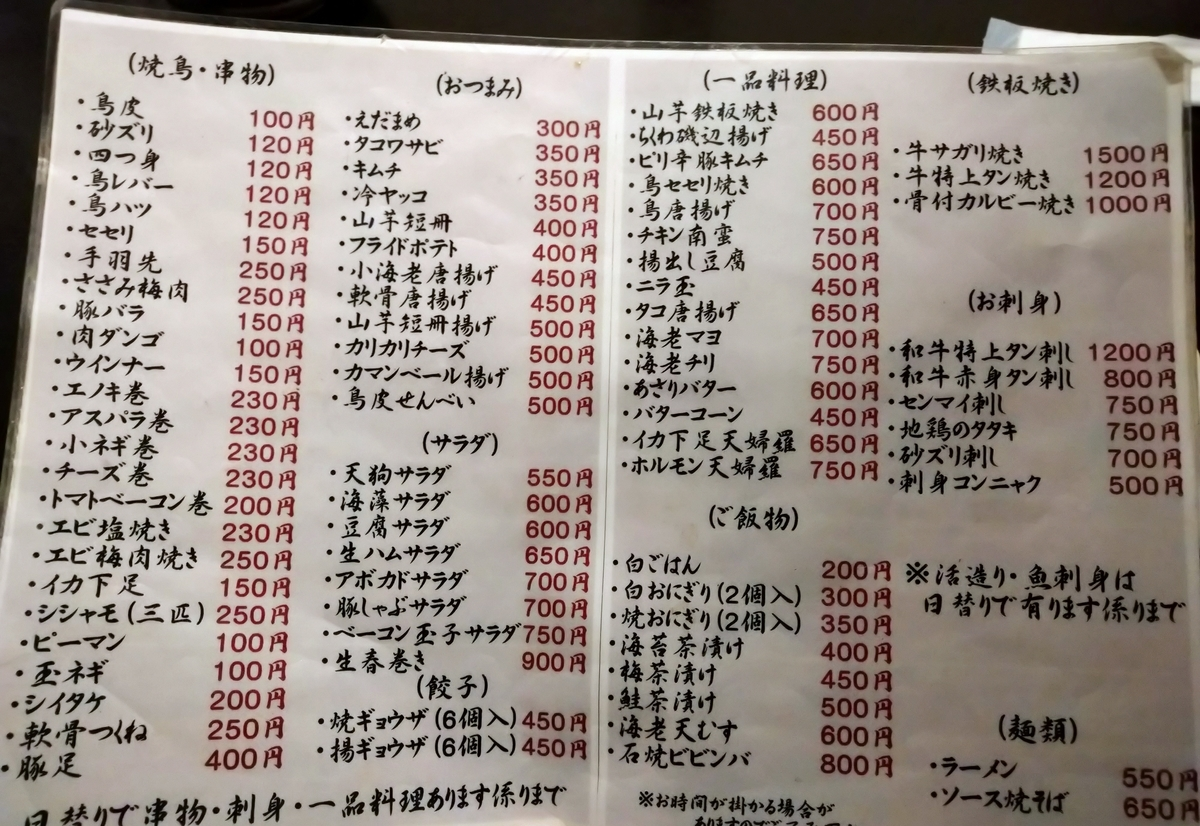 (焼鳥・串物)
・鳥皮 100円
・砂ズリ 120円
・四つ身 120円
・鳥レバー 120円
・鳥ハツ 120円
・セセリ 150円
・手羽先 250円
・ささみ梅肉 250円
・豚バラ 150円
・肉ダンゴ 100円
・ウインナー 150円
・エノキ巻 230円
・アスパラ巻 230円
・小ネギ巻 230円
・チーズ巻 230円
・トマトベーコン巻 200円
・エビ塩焼き 230円
・エビ梅肉焼き 250円
・イカ下足 150円
・シシャモ(三匹) 250円
・ピーマン 100円
・玉ネギ 100円
・シイタケ 200円
・軟骨つくね 250円
・豚足 400円
(おつまみ)
・えだまめ 300円
・タコワサビ 350円
・キムチ 350円
・冷ヤッコ 350円
・山芋短冊 400円
・フライドポテト 400円
・小海老唐揚げ 450円
・軟骨唐揚げ 450円
・山芋短冊揚げ 500円
・カリカリチーズ 500円
・カマンベール揚げ 500円
・鳥皮せんべい 500円
(サラダ)
・天狗サラダ 550円
・海藻サラダ 600円
・豆腐サラダ 600円
・生ハムサラダ 650円
・アボカドサラダ 700円
・豚しゃぶサラダ 700円
・ベーコン玉子サラダ 750円
・生春巻き 900円
(餃子)
・焼ギョウザ(6個入) 450円
・揚ギョウザ(6個入) 450円
日替りで串物・刺身・一品料理あります係りまで
(一品料理)
・山芋鉄板焼き 600円
・ちくわ磯辺揚げ 450円
・ピリ辛豚キムチ 650円
・鳥セセリ焼き 600円
・鳥唐揚げ 700円
・チキン南蛮 750円
・揚出し豆腐 500円
・ニラ玉 450円
・タコ唐揚げ 650円
・海老マヨ 700円
・海老チリ 750円
・あさりバター 600円
・バターコーン 450円
・イカ下足天婦羅 650円
・ホルモン天婦羅 750円
(ご飯物)
・白ごはん 200円
・白おにぎり(2個入) 300円
・焼おにぎり(2個入) 350円
・海苔茶漬け 400円
・梅茶漬け 450円
・鮭茶漬け 500円
・海老天むす 600円
・石焼ビビンバ 800円
※お時間が掛かる場合が
(鉄板焼き)
・牛サガリ焼き 1500円
・牛特上タン焼き 1200円
・骨付カルビー焼き 1000円
(お刺身)
・和牛特上タン刺し 1200円
・和牛赤身タン刺し 800円
・センマイ刺し 750円
・地鶏のタタキ 750円
・砂ズリ刺し 700円
・刺身コンニャク 500円
※活造り・魚刺身は
日替りで有ります係りまで
(麺類)
・ラーメン 550円
・ソース焼そば 650円